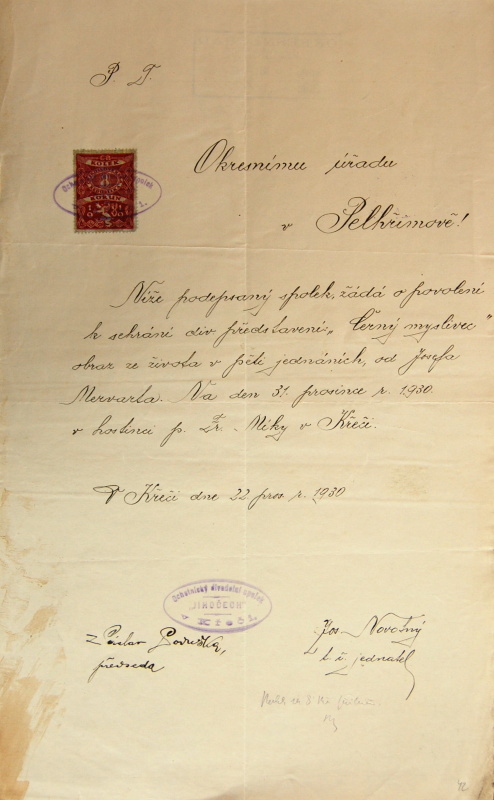 P. T.
Okresnímu úřadu
v Pelhřimově!
Níže podepsaný spolek, žádá o povolení
k sehrání div. představení: „Černý myslivec"
obraz ze života v pěti jednáních, od Josefa
Merварta. Na den 31. prosince r. 1930.
v hostinci p. Fr. Míky v Křeči.
V Křeči dne 22 pros. r. 1930
KOLEK
Ochotnický divadelní spolek
"JINDŘICH"
v Křeči.
Václav
předseda
Jos. Novotný
t. č. jednatel